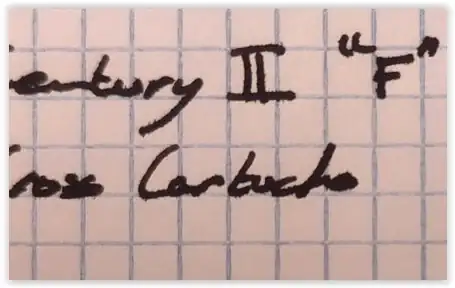 entury II "F"
ross Cartucho